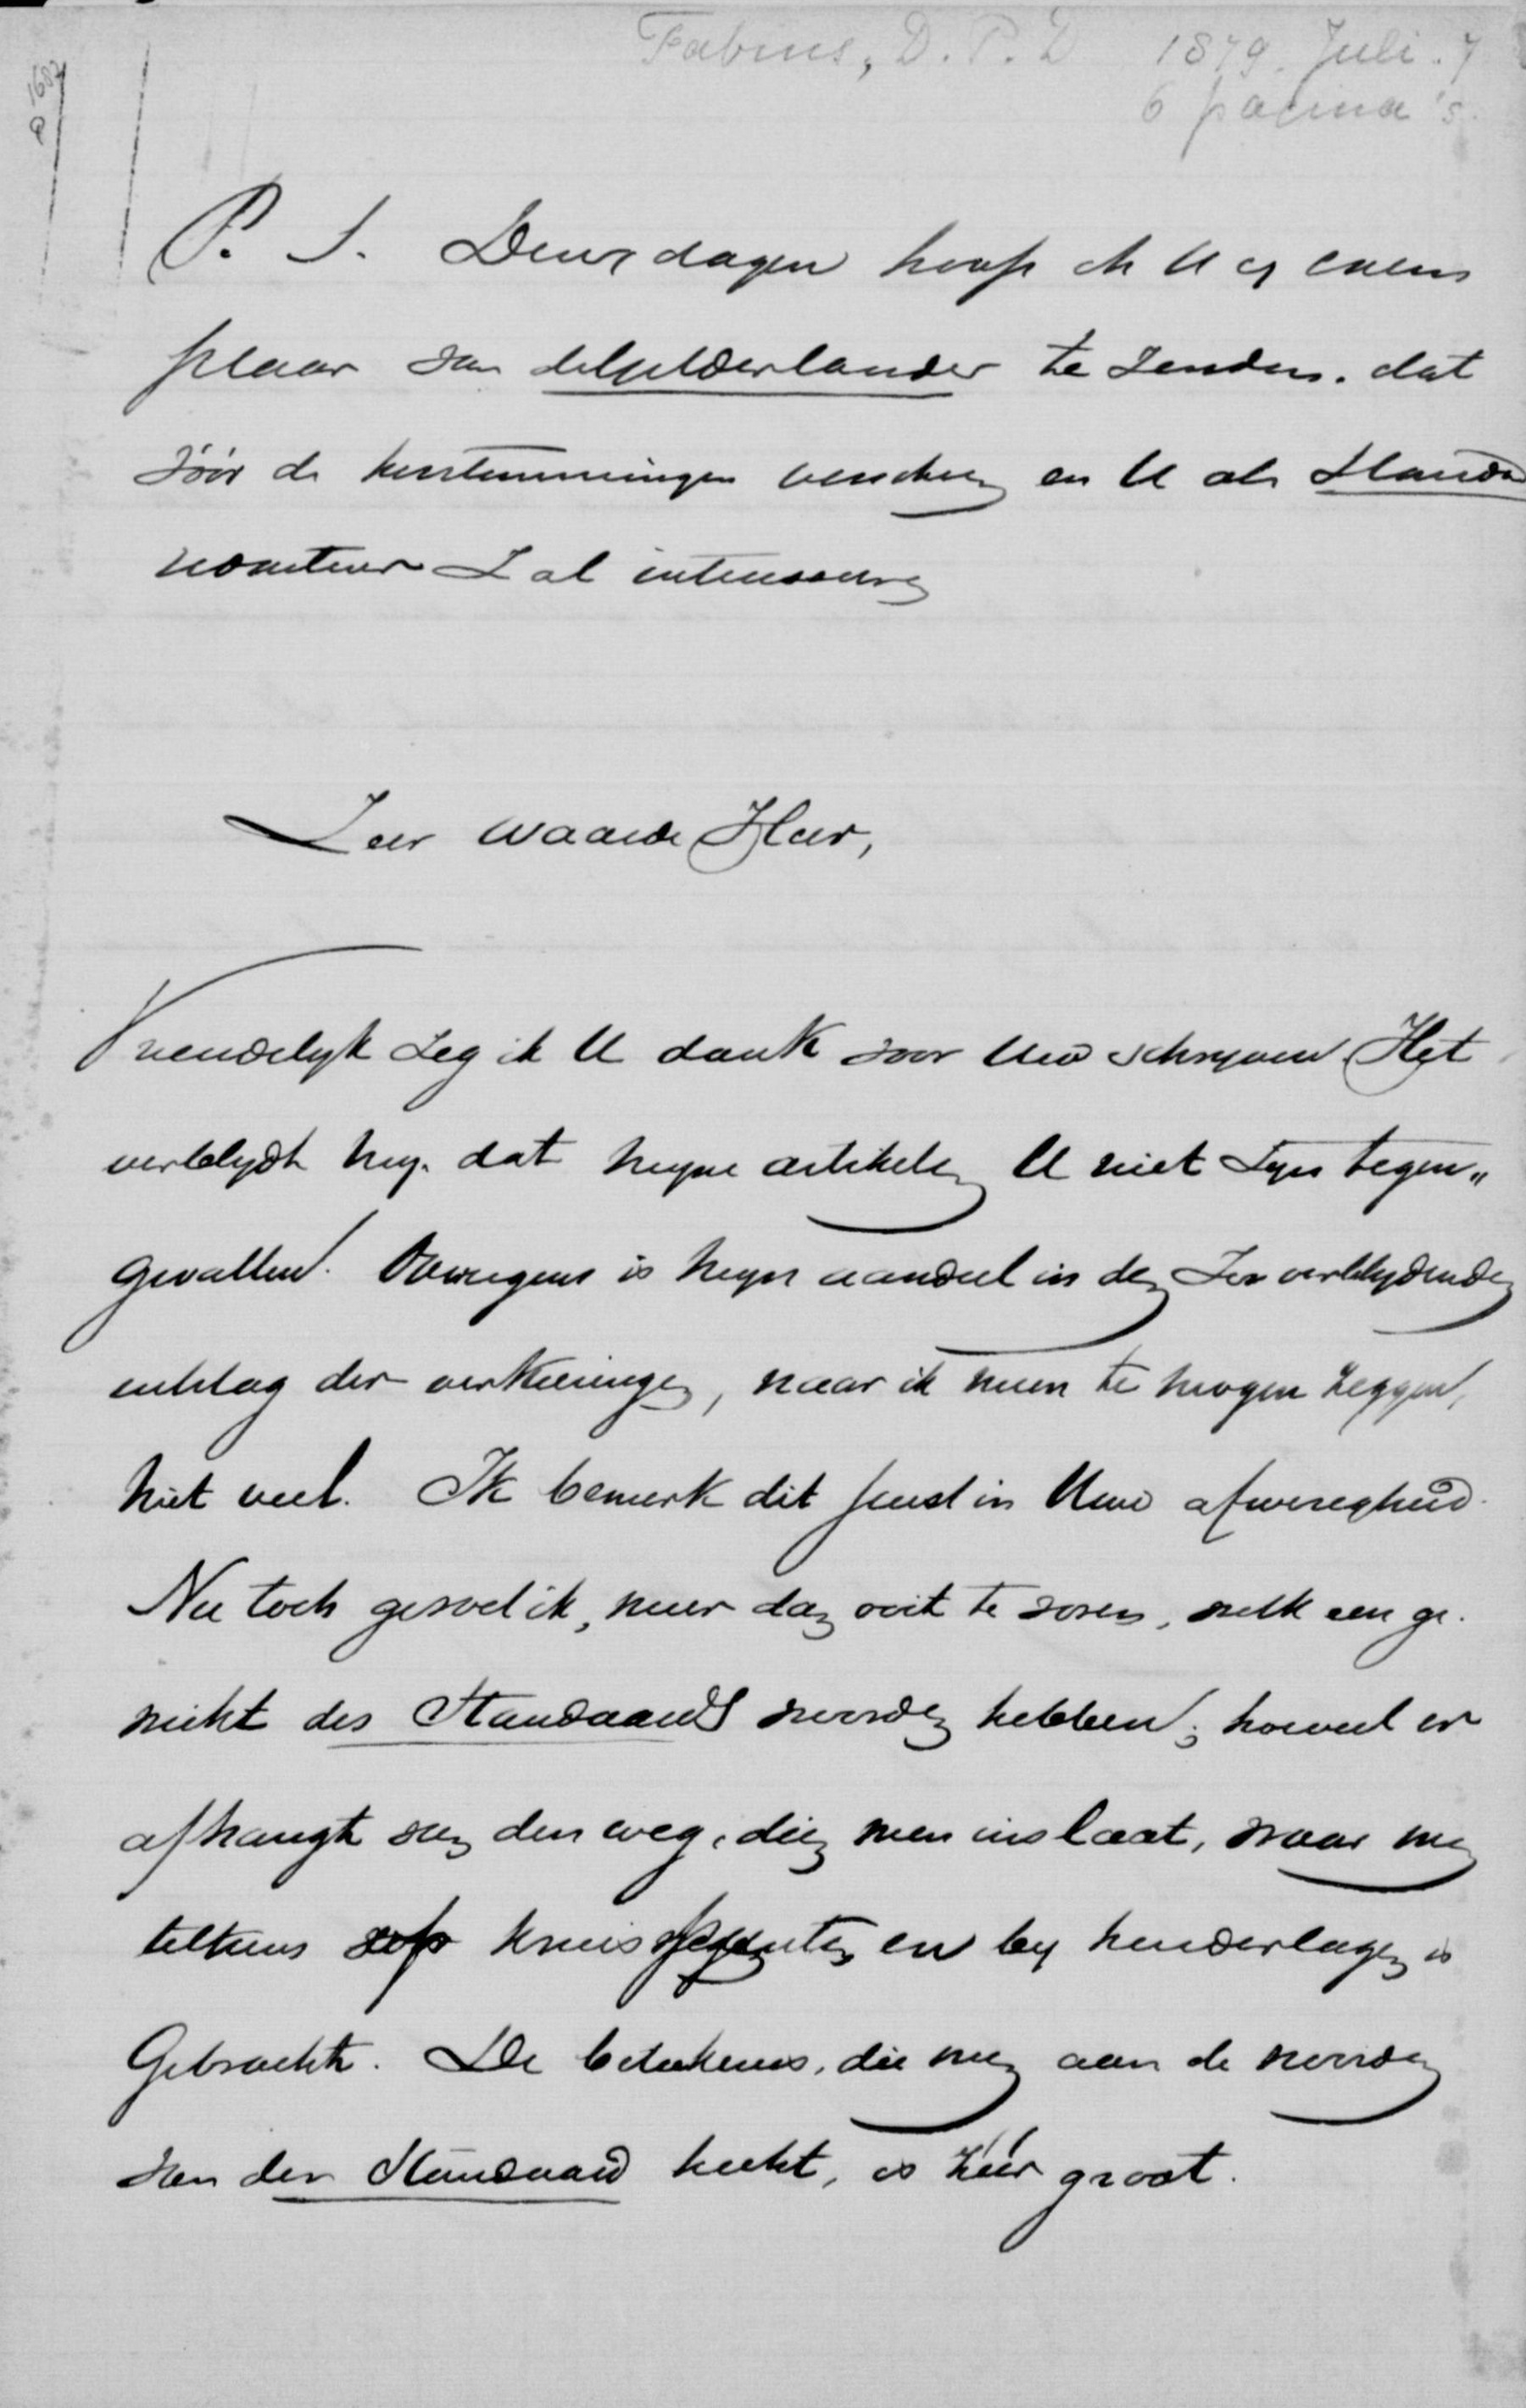 Fabius, D. P. D 1879. Juli. 7
6 pagina's.
P. S. Dezer dagen hoop ik U een exem
plaar van de Gelderlander te zenden, dat
vóór de herstemmingen verscheen en U als Standa
redacteur zal interesseeren
Zeer waarde Heer,
Vriendelijk zeg ik U dank voor Uw schrijven. Het
verblijdt mij, dat mijne artikelen U niet zijn tegen„
gevallen. Overigens is mijn aandeel in den zoo verblijdenden
uitslag der verkiezingen, naar ik meen te mogen zeggen,
niet veel. Ik bemerk dit juist in Uwe afwezigheid.
Nu toch gevoel ik, meer dan ooit te voren, welk een ge„
wicht des Standaards woorden hebben; hoeveel er
afhangt van den weg, dien men inslaat, waar men
telkens op kruispunten en bij hinderlagen is
Gebracht. De beteekenis, die men aan de woorden
van den Standaard hecht, is zéér groot.